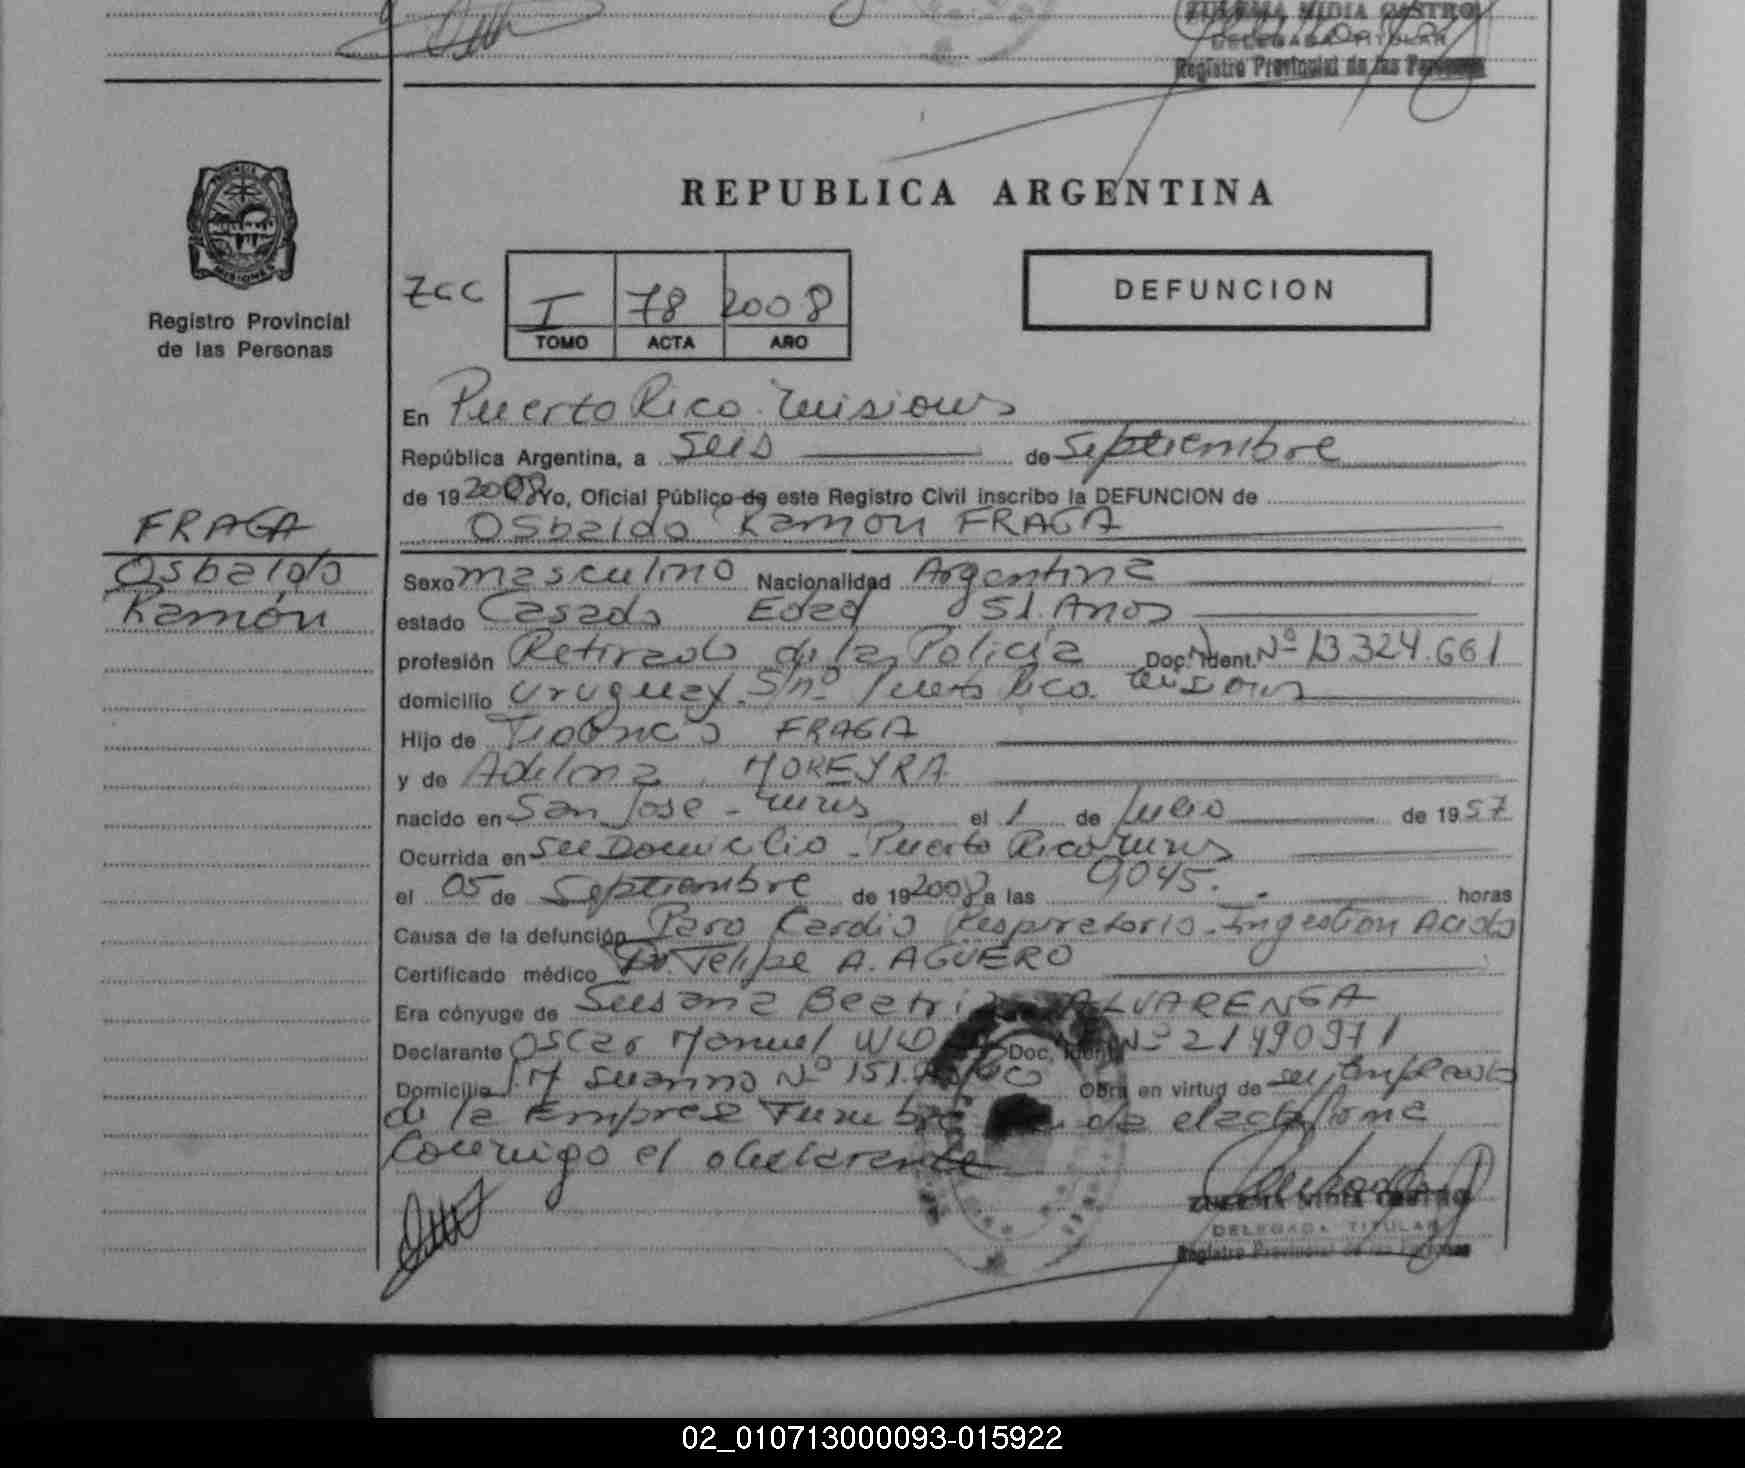 ZULEMA NIDIA CASTRO
DELEGADA TITULAR
Registro Provincial de las Personas
REPUBLICA ARGENTINA
PROVINCIA DE
MISIONES
Registro Provincial
de las Personas
I 78 2008
TOMO ACTA AÑO
DEFUNCION
En Puerto Rico. Misiones
República Argentina, a Seis de Septiembre
de 19 2008 Yo, Oficial Público de este Registro Civil inscribo la DEFUNCION de
Osbaldo Ramon FRAGA
FRAGA
Osbaldo
Ramón
Sexo masculino Nacionalidad Argentina
estado Casado Edad 51. Anos
profesión Retirado de la Policía Doc. Ident. Nº 13.324.661
domicilio Uruguay S/nº Puerto Rico. Misiones
Hijo de FRAGA
y de Adelina MOREYRA
nacido en San Jose - Mnes el 1 de Julio de 1957
Ocurrida en su Domicilio - Puerto Rico Mnes
el 05 de Septiembre de 19 2008 a las 9045. horas
Causa de la defunción Paro Cardio Respiratorio - Ingestion Acido
Certificado médico Dr. Felipe A. AGUERO
Era cónyuge de Susana Beatriz ALVARENGA
Declarante Oscar Manuel Doc. Ident. Nº 21490971
Domicilio Nº 151. Obra en virtud de ser Empleado
de la Empresa Funebre
Conmigo el declarante
ZULEMA NIDIA CASTRO
DELEGADA TITULAR
Registro Provincial de las Personas
02_010713000093-015922